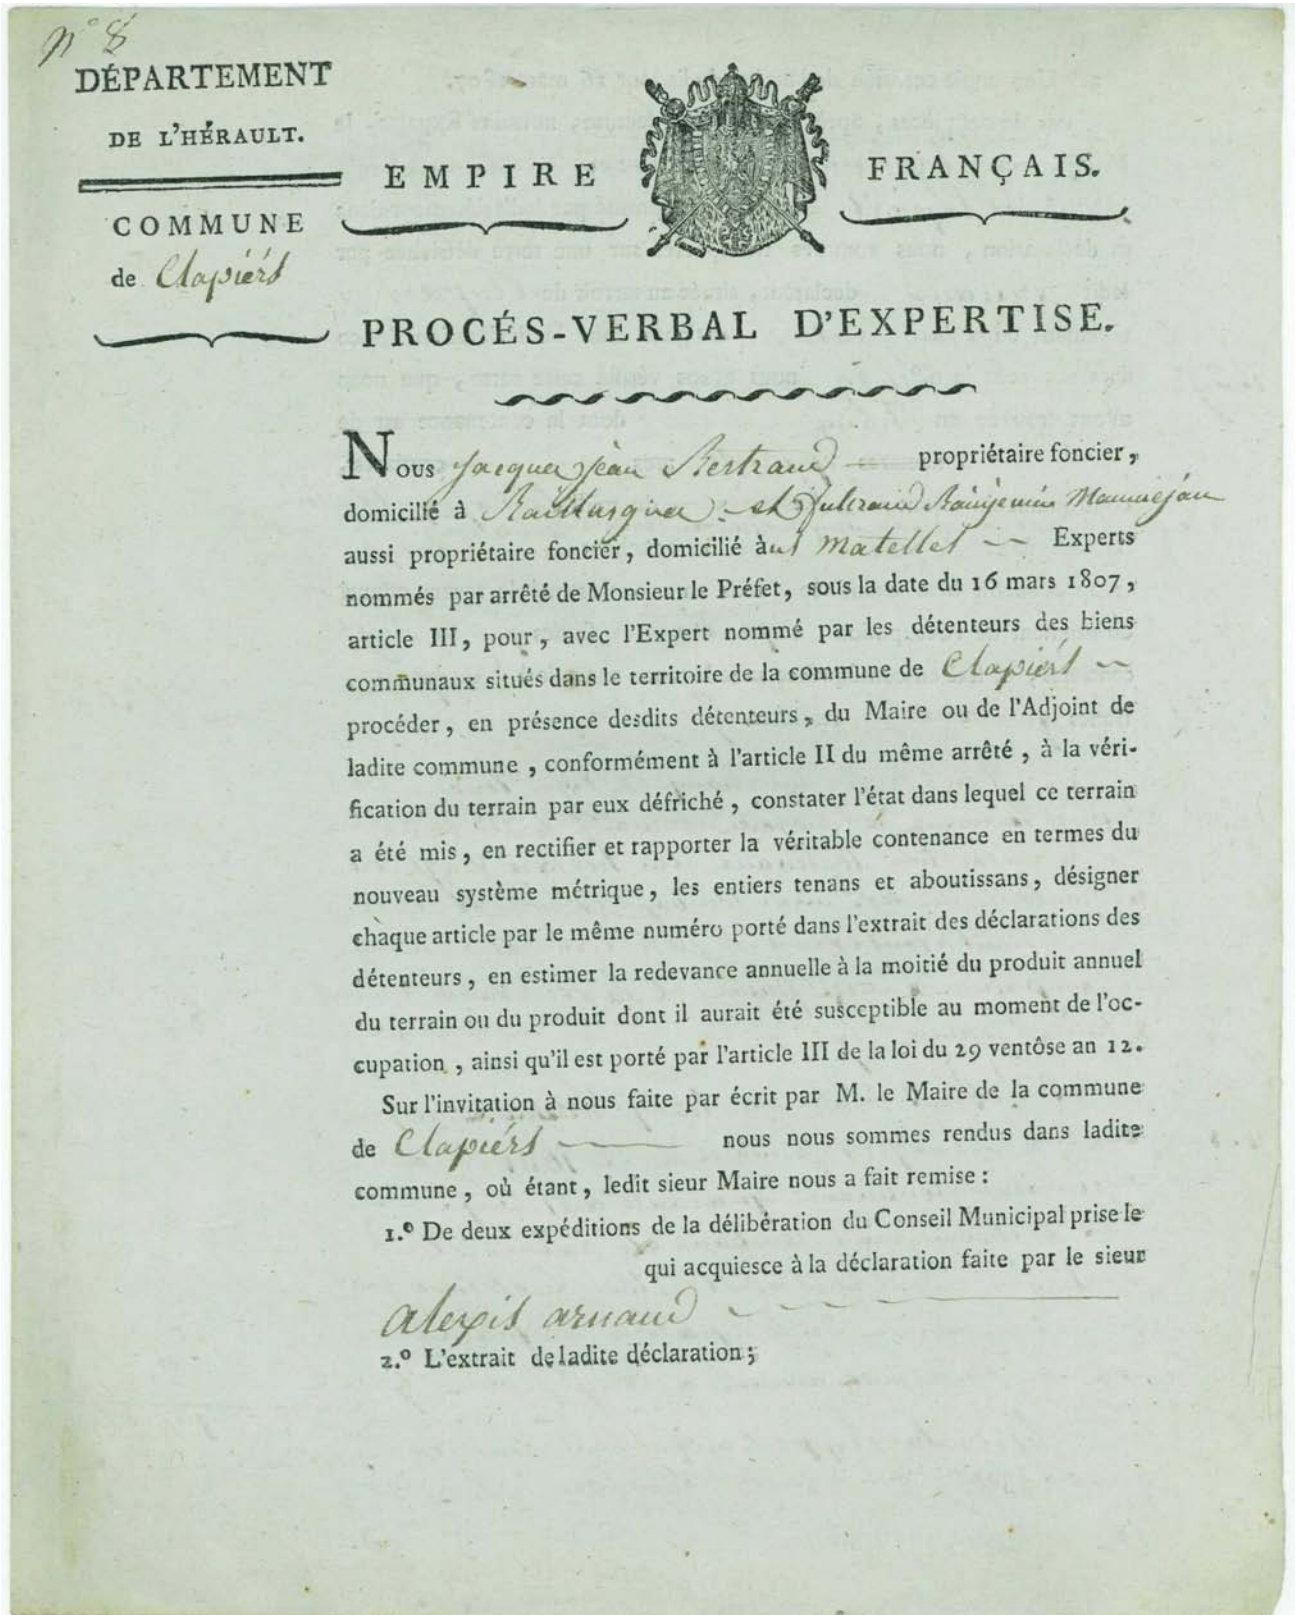 N° 8
DÉPARTEMENT
DE L'HÉRAULT.
COMMUNE
de Clapiérs
EMPIRE FRANÇAIS.
PROCÉS-VERBAL D'EXPERTISE.
Nous Jacques jèan Bertrand propriétaire foncier,
domicilié à et
aussi propriétaire foncier, domicilié à Matelles Experts
nommés par arrêté de Monsieur le Préfet, sous la date du 16 mars 1807,
article III, pour, avec l'Expert nommé par les détenteurs des biens
communaux situés dans le territoire de la commune de Clapiérs
procéder, en présence desdits détenteurs, du Maire ou de l'Adjoint de
ladite commune, conformément à l'article II du même arrêté, à la véri-
fication du terrain par eux défriché, constater l'état dans lequel ce terrain
a été mis, en rectifier et rapporter la véritable contenance en termes du
nouveau système métrique, les entiers tenans et aboutissans, désigner
chaque article par le même numéro porté dans l'extrait des déclarations des
détenteurs, en estimer la redevance annuelle à la moitié du produit annuel
du terrain ou du produit dont il aurait été susceptible au moment de l'oc-
cupation, ainsi qu'il est porté par l'article III de la loi du 29 ventôse an 12.
Sur l'invitation à nous faite par écrit par M. le Maire de la commune
de Clapiérs nous nous sommes rendus dans ladite
commune, où étant, ledit sieur Maire nous a fait remise :
1.° De deux expéditions de la délibération du Conseil Municipal prise le
qui acquiesce à la déclaration faite par le sieur
alexis arnaud
2.° L'extrait de ladite déclaration ;